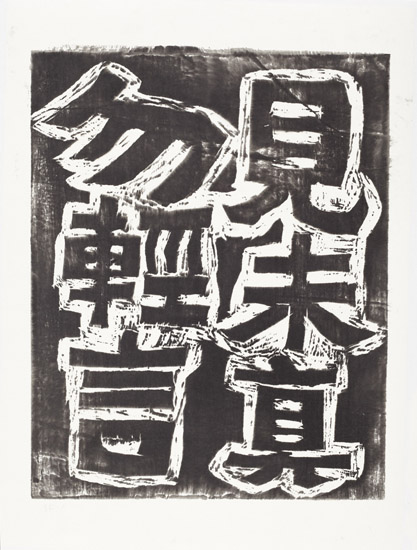 見未真
勿輕言